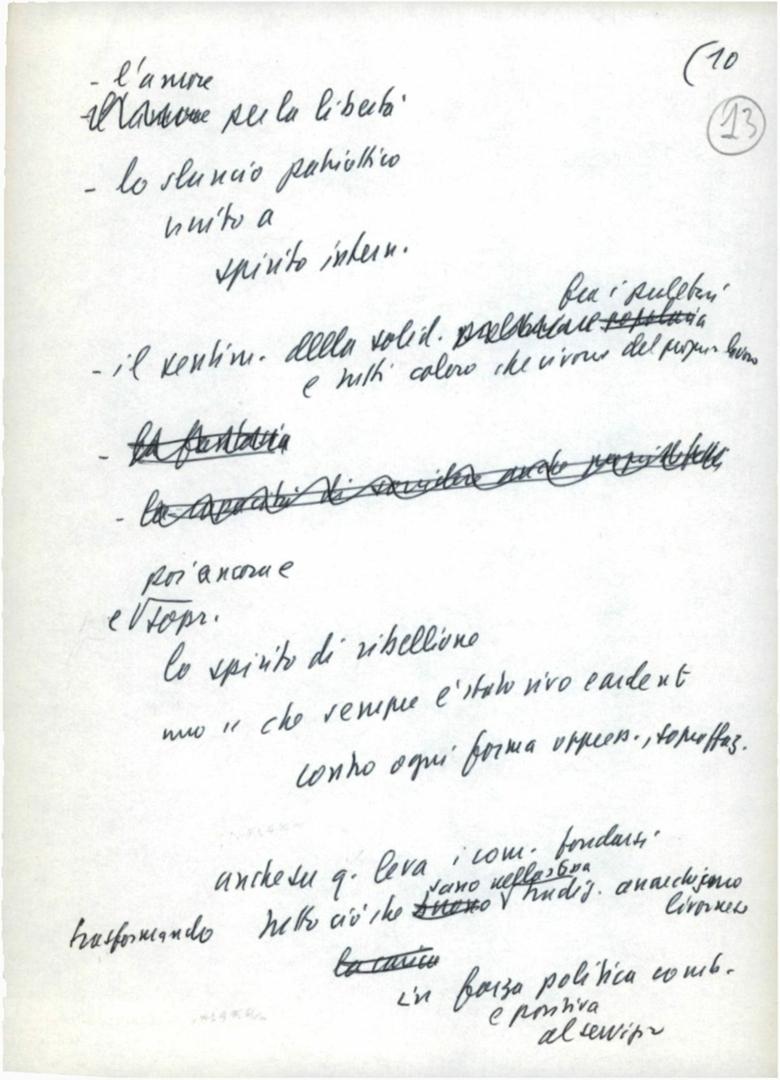 (10
13
- l'amore
per la libertà
- lo slancio patriottico
unito a
spirito intern.
fra i proletari
- il sentim. della solid.
e tutti coloro che vivono del proprio lavoro
- la fantasia
- la capacità di sorridere anche
poi ancora e
e sopr.
lo spirito di ribellione
uno " che sempre è stato vivo e ardent
contro ogni forma oppress., sopraffaz.
anche su q. leva i com. fondarsi
sano nella stor
trasformando tutto ciò che buono tradiz. anarchismo
livornese
la carica
in forza politica comb.
e positiva
al servizio